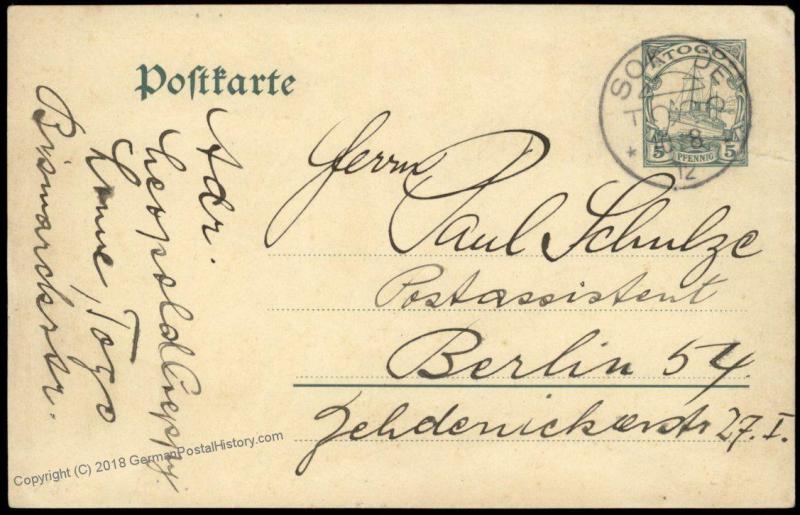 Postkarte
TOGO
5 PFENNIG 5
SOKODE
TOGO
8 12
Herrn
Paul Schulze
Postassistent
Berlin 54
Zehdenickerstr 27. I.
Adr.
Leopold
Lome, Togo
Bismarckstr.
Copyright (C) 2018 GermanPostalHistory.com